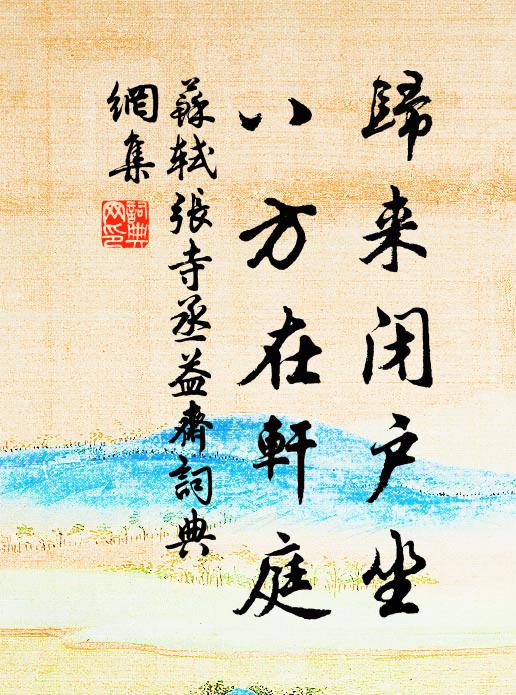 歸来闭户坐
八方在軒庭
蘇軾張寺丞益齋詞典
網集
詞典
网印